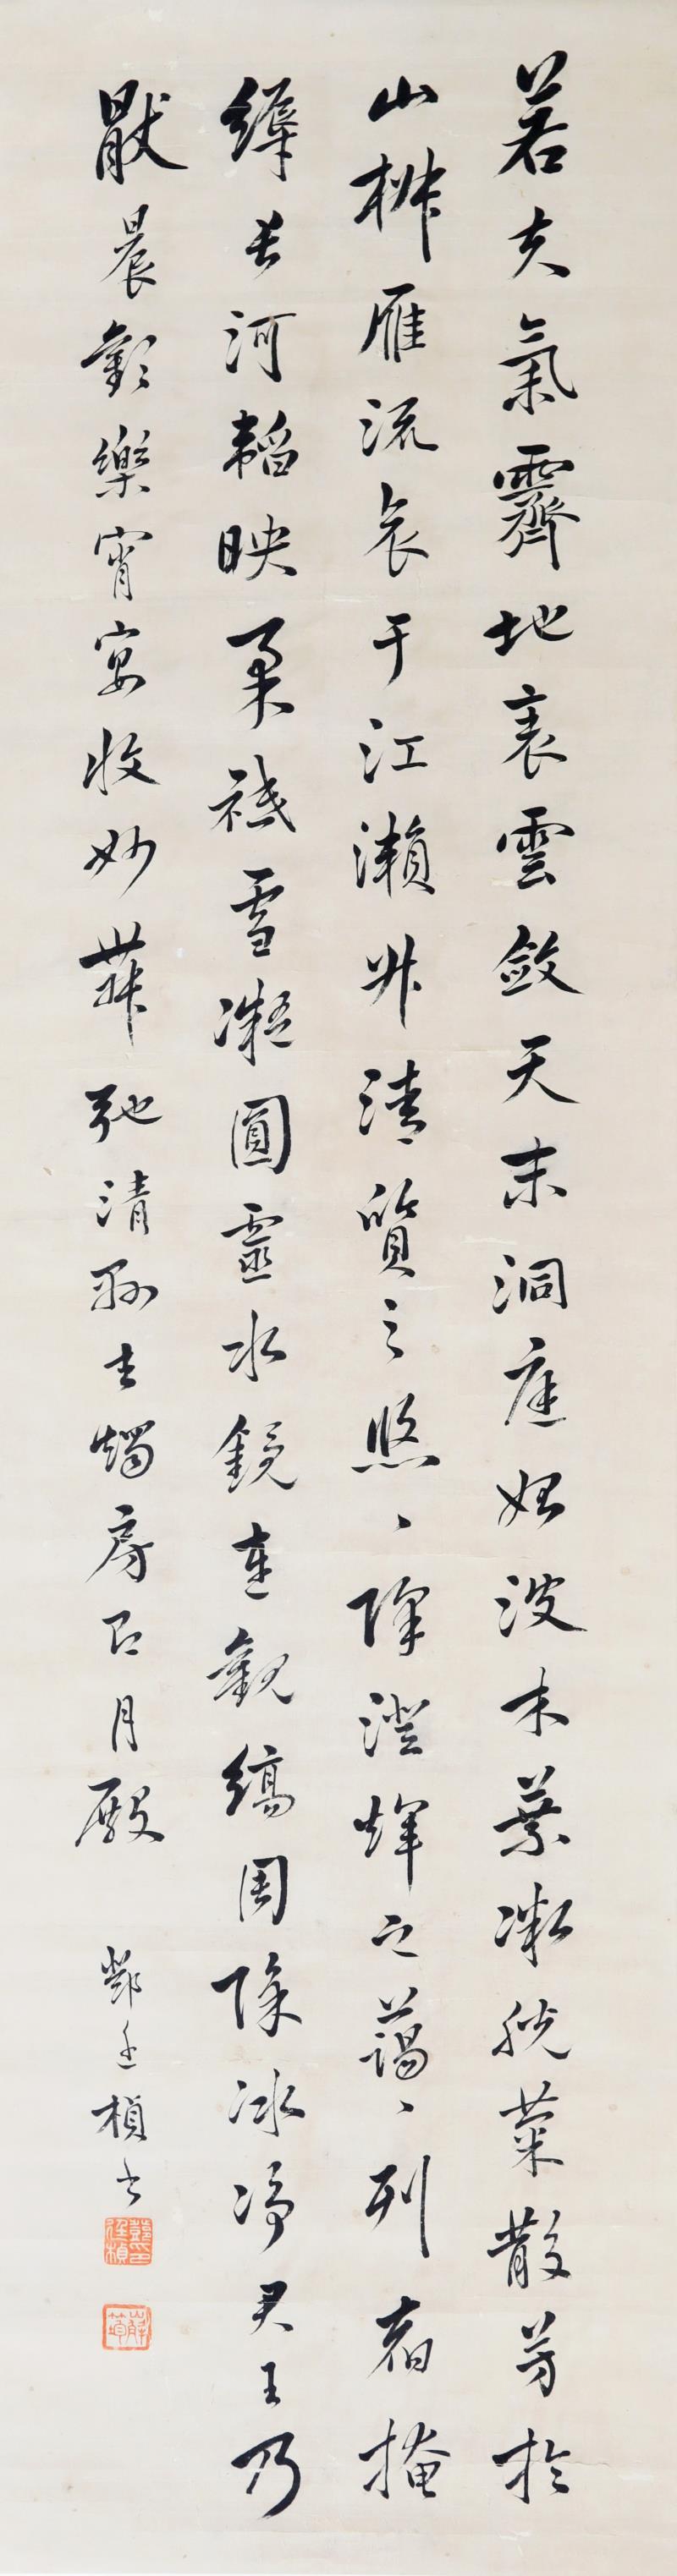 若夫氣霽地表雲斂天末洞庭始波木葉微脫菊散芳於
山椒雁流哀于江瀨升清質之悠、降澄輝之藹、列宿掩
縟長河韜映柔祇雪凝圓靈水鏡連觀縞周除冰淨君王乃
猒晨歡樂宵宴收妙舞弛清縣去燭房即月殿
鄧廷楨書
鄧印廷楨
嶰筠